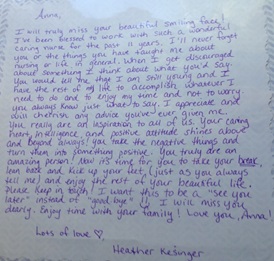 Anna,
I will truly miss your beautiful smiling face.
I've been blessed to work with such a wonderful
caring nurse for the past 11 years. I'll never forget
you or the things you have taught me about
nursing or life, in general. When I get discouraged
about something I think about what you'd say.
You would tell me that I am still young and I
have the rest of my life to accomplish whatever I
need to do and to enjoy my time and not to worry.
You always know just what to say. I appreciate and
will cherish any advice you've ever given me.
You really are an inspiration to all of us. Your caring
heart, intelligence, and positive attitude shines above
and beyond always! You take the negative things and
turn them into something positive. You truly are an
amazing person! Now it's time for you to take your break,
lean back and kick up your feet, (just as you always
tell me) and enjoy the rest of your beautiful life.
Please keep in touch! I want this to be a "see you
later" instead of "good bye". I will miss you
dearly. Enjoy time with your family! Love you, Anna!
Lots of love ♡
Heather Kesinger